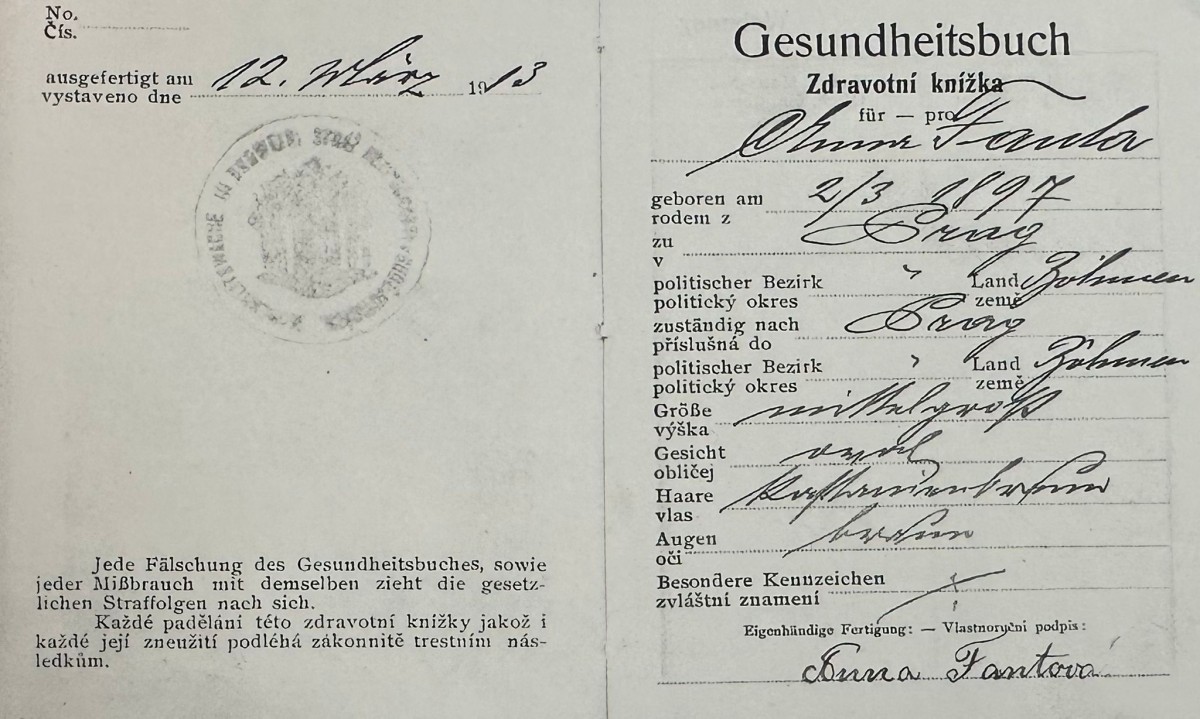 No.
Čís.
ausgefertigt am 12. März 1913
vystaveno dne
Jede Fälschung des Gesundheitsbuches, sowie
jeder Mißbrauch mit demselben zieht die gesetz-
lichen Straffolgen nach sich.
Každé padělání této zdravotní knížky jakož i
každé její zneužití podléhá zákonnitě trestním nás-
ledkům.
Gesundheitsbuch
Zdravotní knížka
für — pro
Anna Fanta
geboren am 2/3 1897
rodem z
zu Prag
v
politischer Bezirk " Land Böhmen
politický okres země
zuständig nach Prag
příslušná do
politischer Bezirk " Land Böhmen
politický okres země
Größe mittelgroß
výška
Gesicht oval
obličej
Haare kastanienbraun
vlas
Augen braun
oči
Besondere Kennzeichen
zvláštní znamení
Eigenhündige Fertigung: — Vlastnoryční podpis:
Anna Fantová